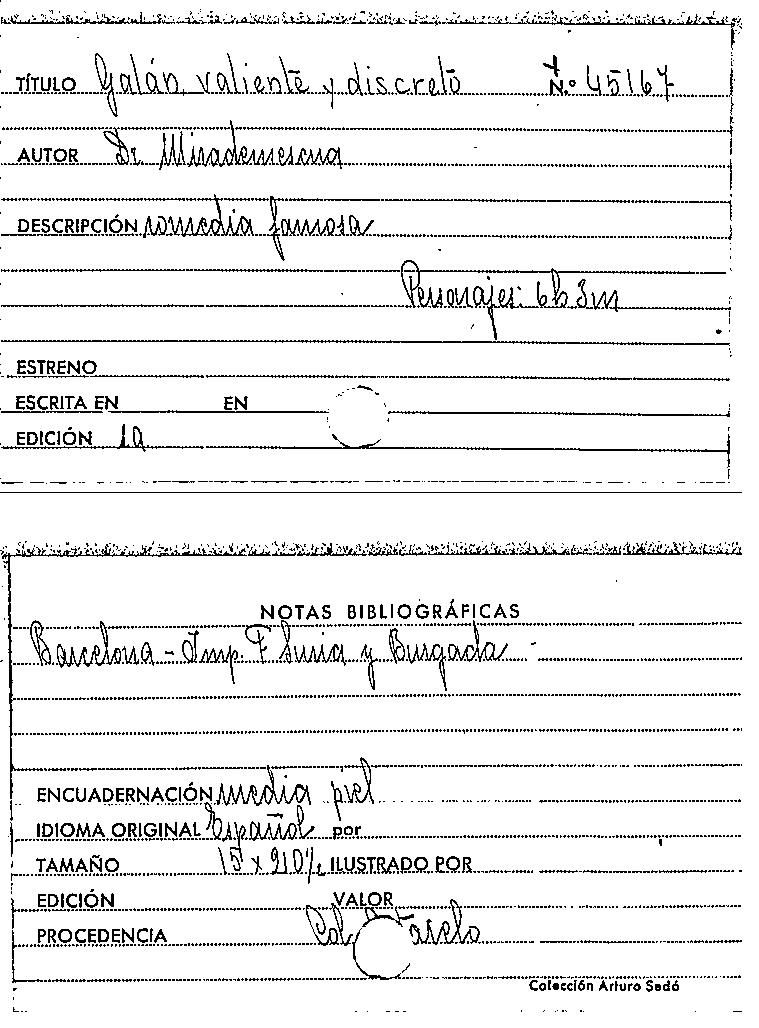 TÍTULO Galán, valiente y discreto N.º 45167
AUTOR Dr. Mirademescua
DESCRIPCIÓN comedia famosa
Personajes: 6h 3m
ESTRENO
ESCRITA EN EN
EDICIÓN 1a
NOTAS BIBLIOGRÁFICAS
Barcelona - Imp. F Suria y Burgada -
ENCUADERNACIÓN media piel
IDIOMA ORIGINAL Español por
TAMAÑO 15 x 210 ILUSTRADO POR
EDICIÓN VALOR
PROCEDENCIA Col.
Colección Arturo Sedó